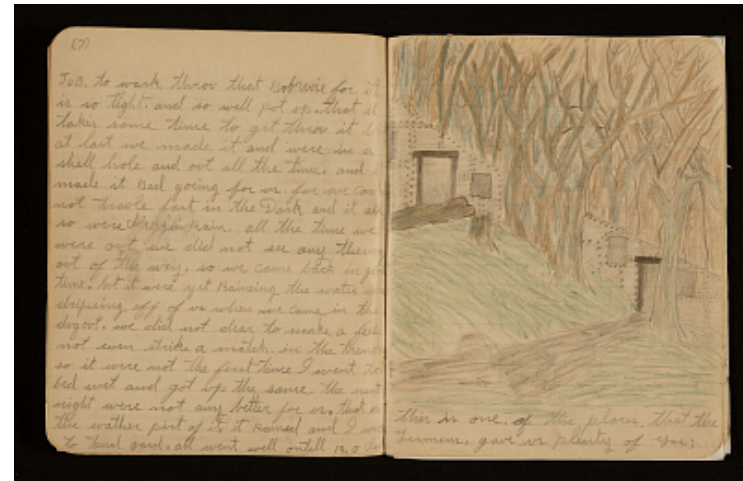 (7)
JoB. to work throw that Bobwire for it
is so tight. and so well pot up. that it
takes some time to get throw it
at last we made it and were in a
shell hole and out all the time. and
made it Bad going for us. for we
not travle fast in the Dark and it
so were rain. all the time we
were out, we did not see any theng
out of the way. so we came back in
time. but it were yet Raineing the water
dripeing off of us when we came in the
dugout. we did not dear to make a
not even strike a match. in the
so it were not the first time I went to
bed wet and got up the same. the next
night were not any better for us. that is
the wather part of it it Rained and I
to tend gard. all went well ontell
this is one. of the places. that the
Germens. gave us plenty of gas.